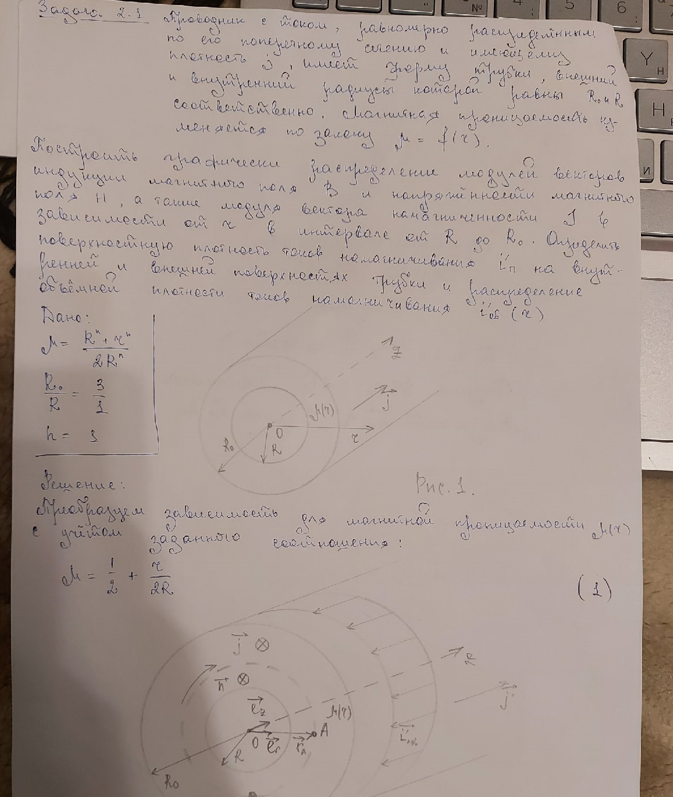 Задача 2.1 Проводник с током, равномерно распределенным
по его поперечному сечению и имеющему
плотность j, имеет форму трубки, внешний
и внутренний радиусы которой равны R₀ и R
соответственно. Магнитная проницаемость из-
меняется по закону μ = f(r).
Построить графически распределение модулей векторов
индукции магнитного поля B и напряжённости магнитного
поля H, а также модуля вектора намагниченности J в
зависимости от r в интервале от R до R₀. Определить
поверхностную плотность токов намагничивания i'п на внут-
ренней и внешней поверхностях трубки и распределение
объёмной плотности токов намагничивания i'об (r)
Дано:
μ = (Rⁿ + rⁿ) / 2Rⁿ
R₀/R = 3/1
n = 1
μ(r)
z
j
R₀
O
R
r
Рис. 1.
Решение:
Преобразуем зависимость для магнитной проницаемости μ(r)
с учётом заданного соотношения:
μ = 1/2 + r/2R (1)
j
n
e_z
μ(r)
A
O
R
R₀
j